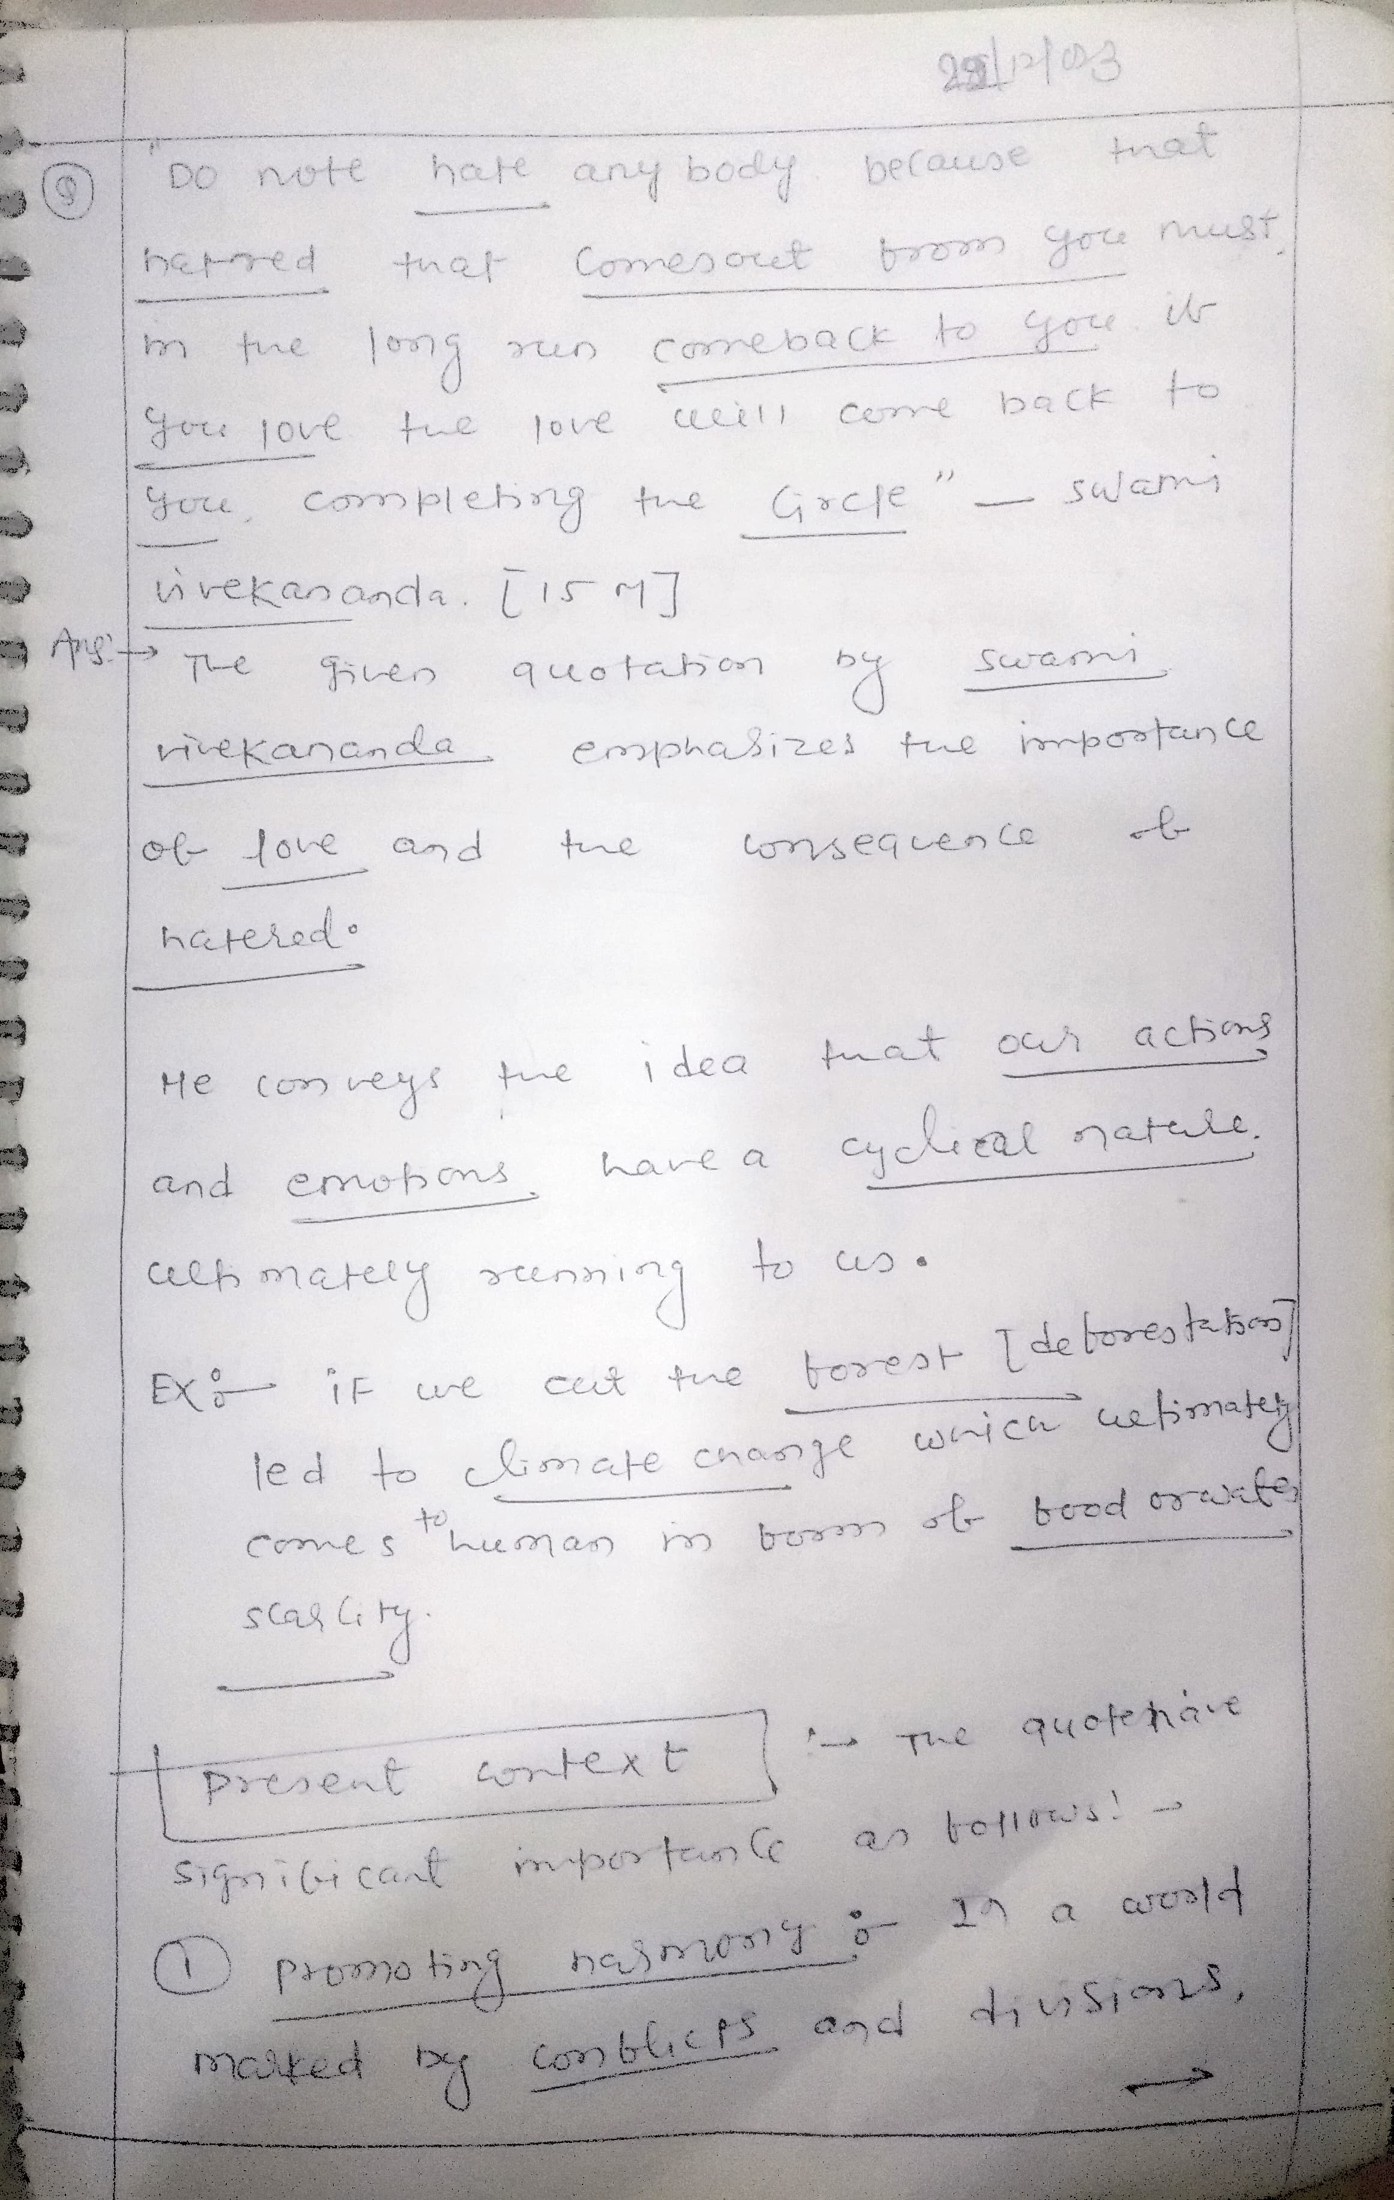 Q
"Do note hate any body because that
hatered that comesout from you must,
in the long run comeback to you. if
you love the love will come back to
you, completing the Circle" – swami
vivekananda. [15 M]
Ans:→ The given quotation by swami
vivekananda emphasizes the importance
of love and the consequence of
hatered.
He conveys the idea that our actions
and emotions have a cyclical nature.
ultimately running to us.
EX:- if we cut the forest [deforestation]
led to climate change which ultimately
comes to human in form of food or water
scarcity.
Present context :→ The quote have
significant importance as follows:→
① Promoting harmony :- In a world
marked by conflicts and divisions,
→